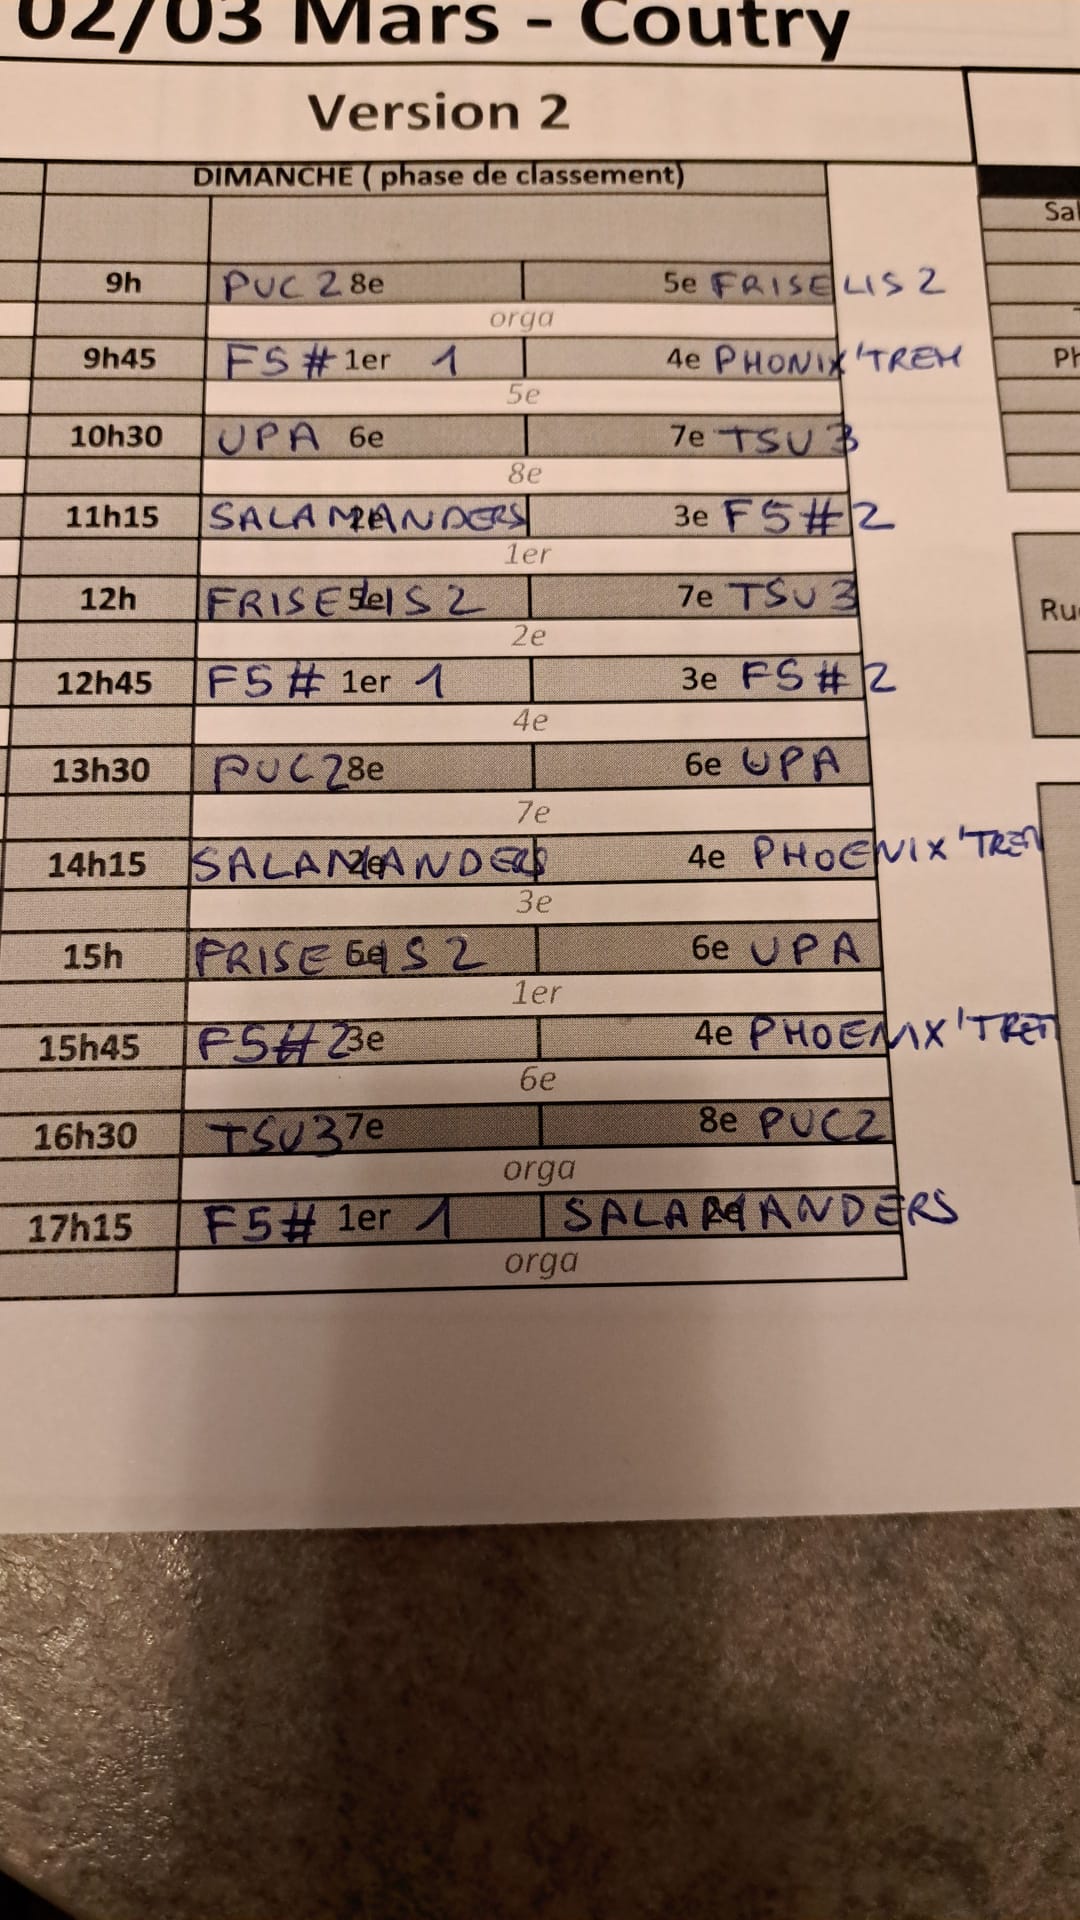 02/03 Mars - Coutry
Version 2
DIMANCHE ( phase de classement)
Sal
9h PUC 2 8e 5e FRISELIS 2
orga
9h45 F5# 1er 1 4e PHONIX'TREM
Ph
5e
10h30 UPA 6e 7e TSU 3
8e
11h15 SALAMANDERS 2e 3e F5#2
1er
12h FRISELIS 2 5e 7e TSU 3
Ru
2e
12h45 F5# 1er 1 3e F5#2
4e
13h30 PUC 2 8e 6e UPA
7e
14h15 SALAMANDERS 2e 4e PHOENIX'TREM
3e
15h FRISELIS 2 5e 6e UPA
1er
15h45 F5#2 3e 4e PHOENIX'TREM
6e
16h30 TSU3 7e 8e PUC2
orga
17h15 F5# 1er 1 SALAMANDERS 2e
orga